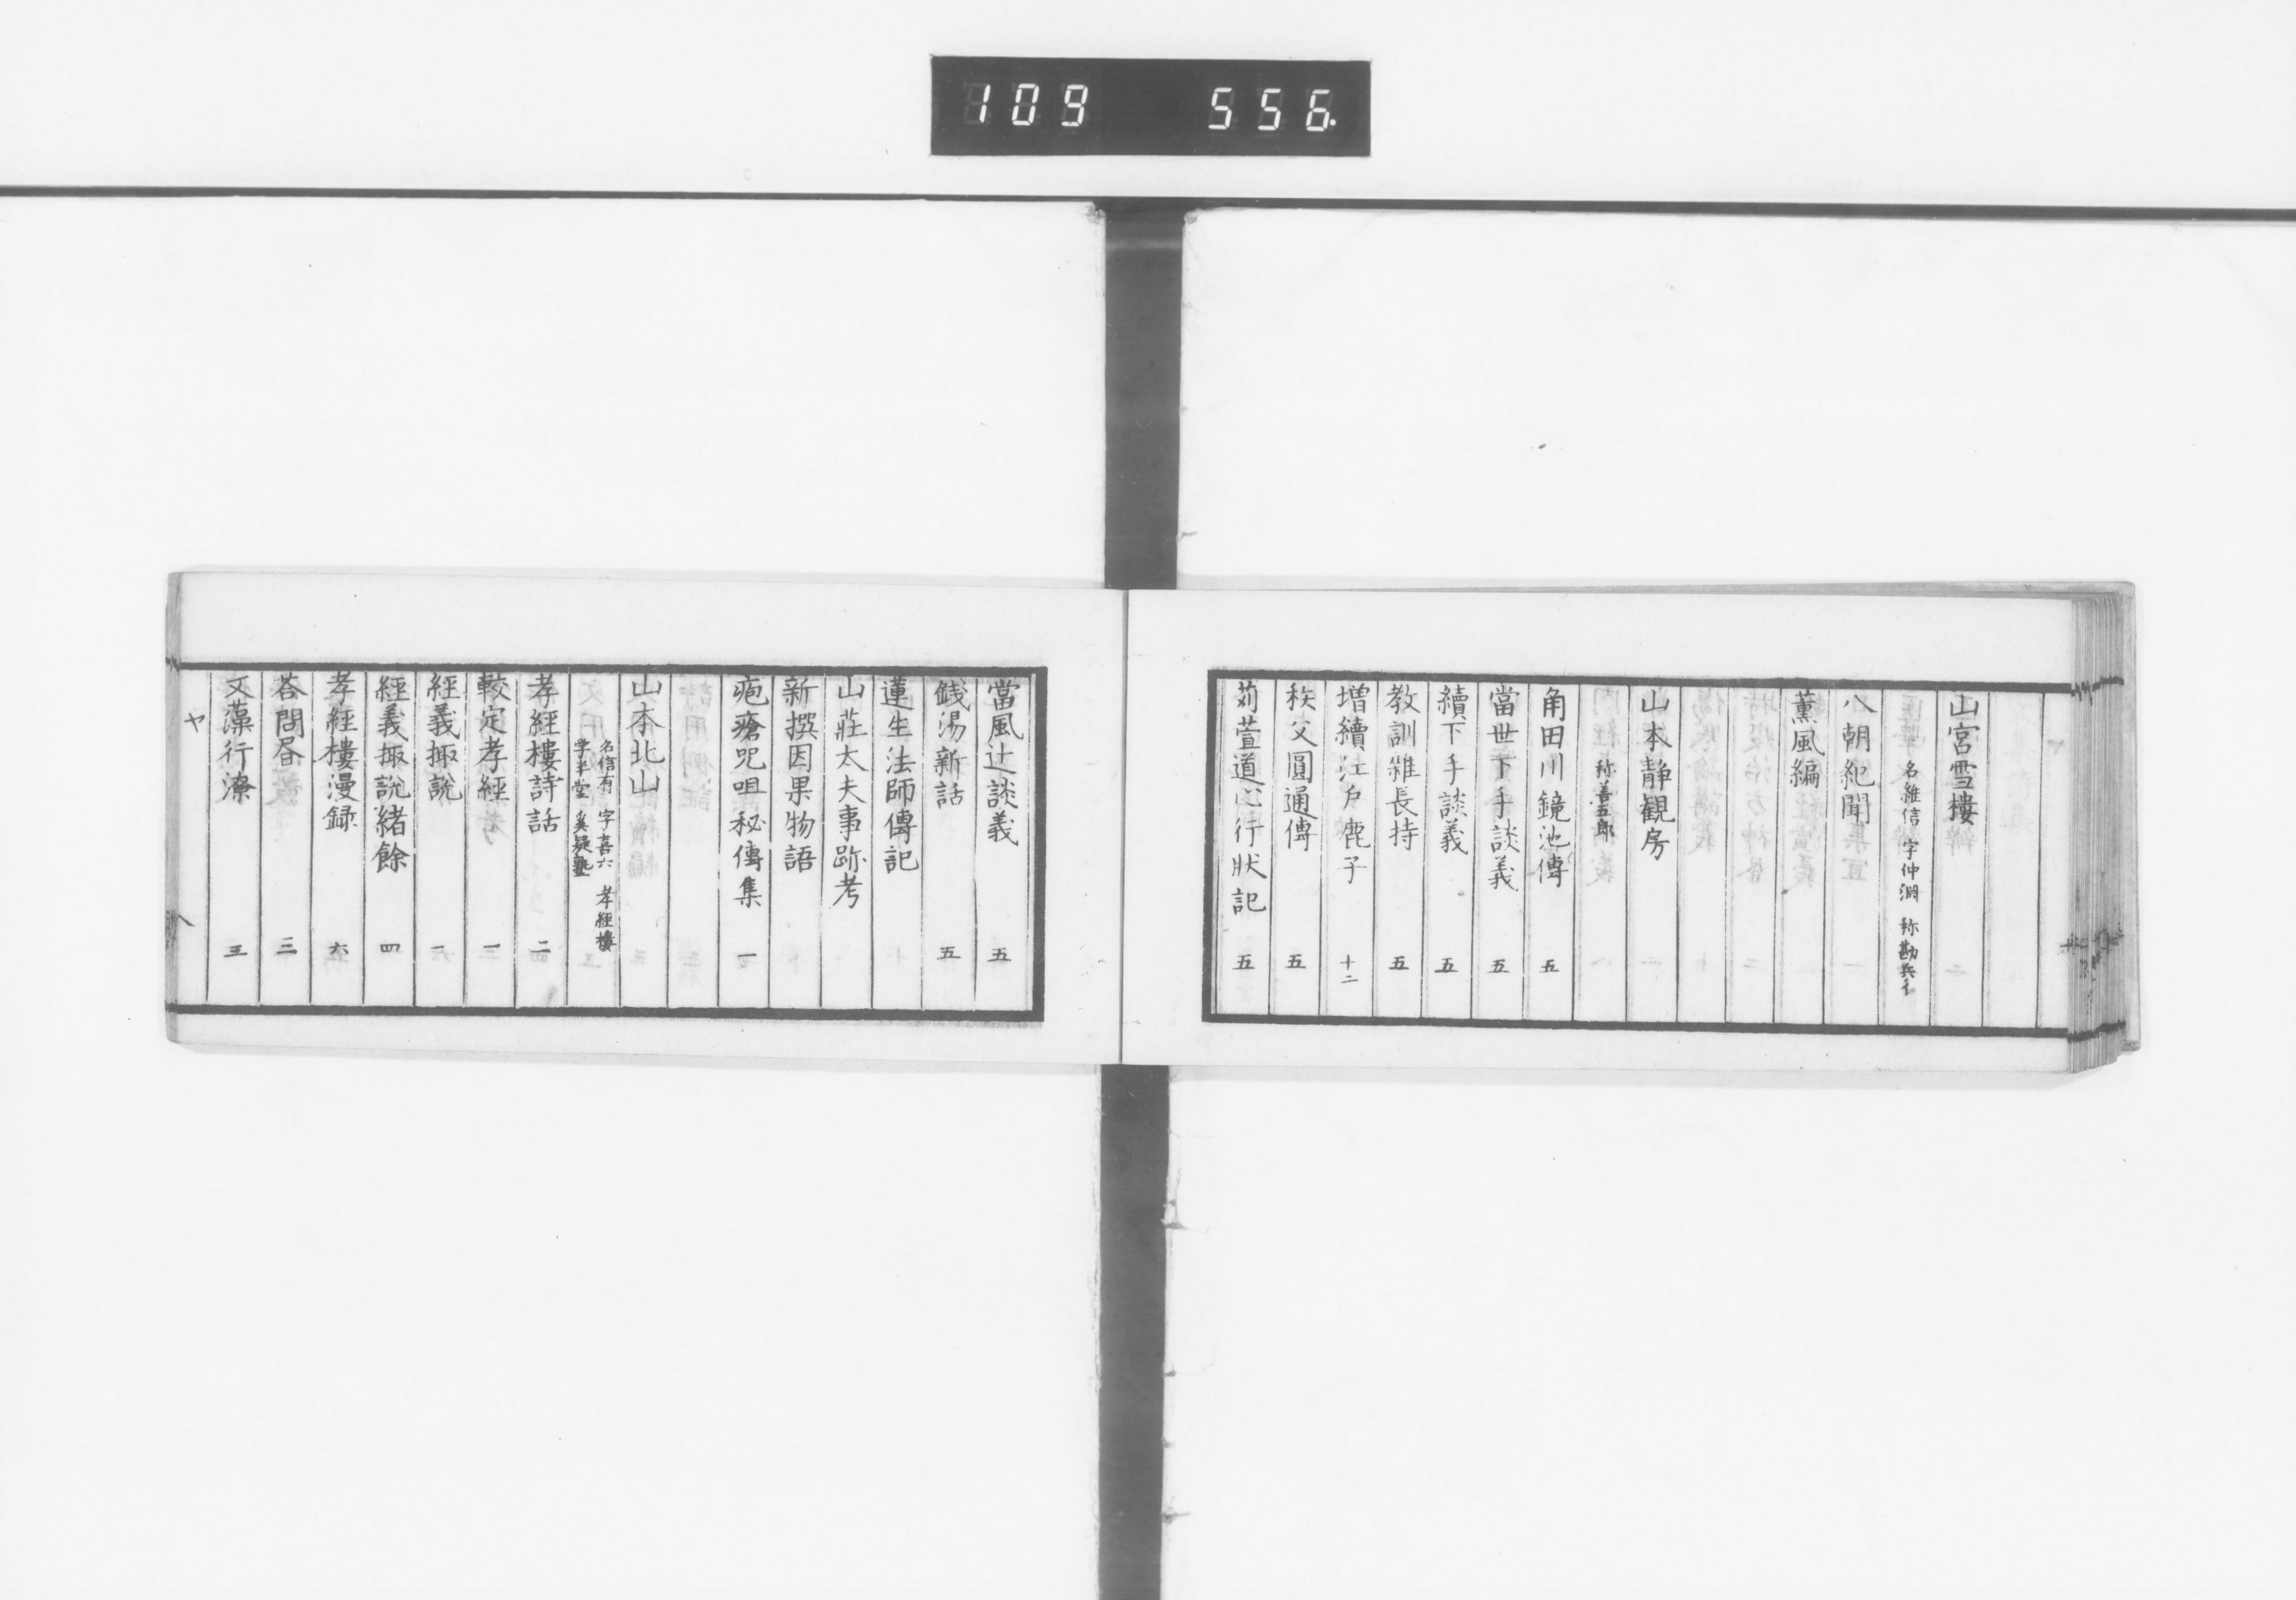 109 556.
山宮雪樓
名維信 字仲淵 称勘兵衛
八朝紀聞
薫風編
山本静観房
称善五郎
角田川鏡池傳 五
當世下手談義 五
續下手談義 五
教訓雜長持 五
増續江戶鹿子 十二
秩父圓通傳 五
苅萱道心行狀記 五
當風辻談義 五
銭湯新話 五
蓮生法師傳記
山莊太夫事跡考
新撰因果物語
疱瘡咒咀秘傳集 一
山本北山
名信有 字喜六 孝經樓
学半堂 奚疑塾
孝經樓詩話 二
較定孝經 一
經義掫說 一
經義掫說緒餘 四
孝經樓漫録 六
荅問昏 三
文藻行潦 五
ヤ